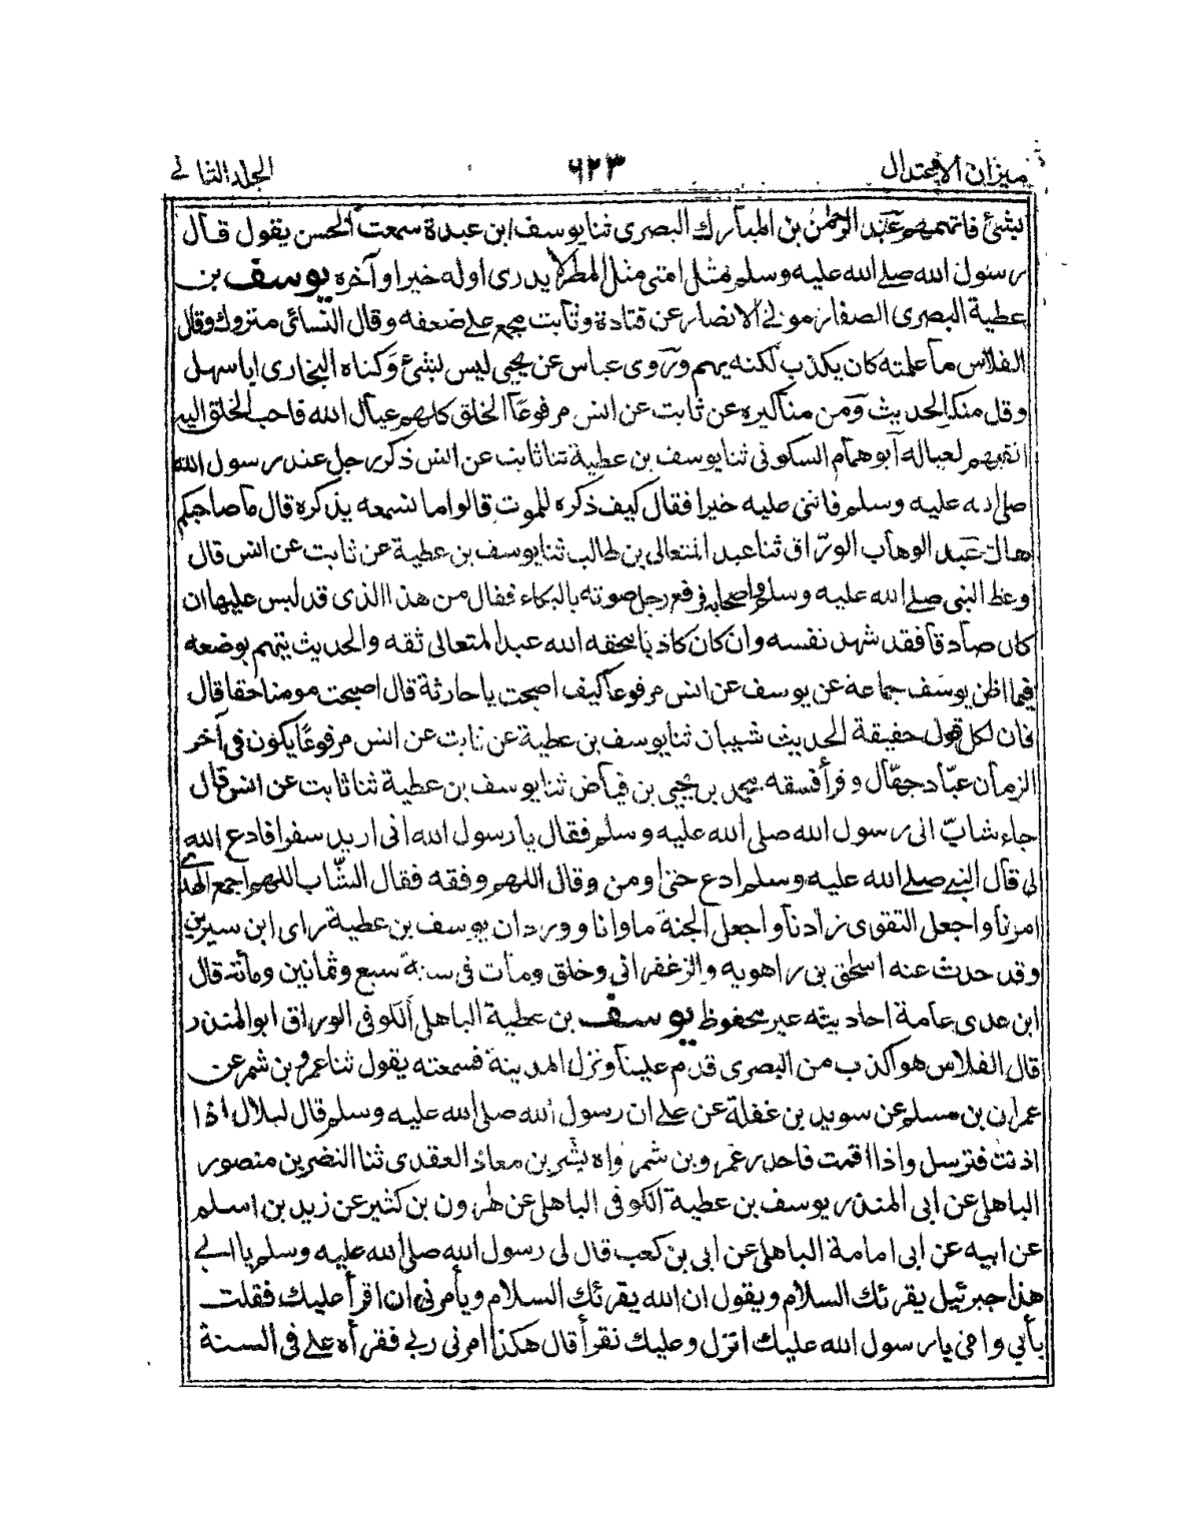 ميزان الاعتدال ٦٢٣ الجلد الثاني
بشئ فاتهمهم عبد الرحمن بن المبارك البصرى ثنا يوسف ابن عبدة سمعت الحسن يقول قال
رسول الله صلے الله عليه وسلم مثل امتى مثل المطر لا يدرى اوله خير او آخره يوسف بن
عطية البصرى الصفار مولى الانصار عن قتادة وثابت مجمع على ضعفه وقال النسائى متروك وقال
الفلاس ما علمته كان يكذب لكنه يهم وروى عباس عن يحيى ليس بشئ وكناه البخارى ابا سهل
وقل منكر الحديث ومن مناكيره عن ثابت عن انس مرفوعًا الخلق كلهم عيال الله فاحب الخلق اليه
انفعهم لعياله أبو همام السكونى ثنا يوسف بن عطية ثنا ثابت عن انس ذكر رجل عند رسول الله
صلى الله عليه وسلم فاثنى عليه خيرا فقال كيف ذكره للموت قالوا ما نسمعه يذكره قال ما صاحبكم
هناك عبد الوهاب الورّاق ثنا عبد المتعالى بن طالب ثنا يوسف بن عطية عن ثابت عن انس قال
وعظ النبى صلے الله عليه وسلم واصحابه فرفع رجل صوته بالبكاء فقال من هذا الذى قد لبس علينا ان
كان صادقا فقد شهر نفسه وان كان كاذبا محقه الله عبد المتعالى ثقه والحديث يتهم بوضعه
فيما اظن يوسف جماعة عن يوسف عن انس مرفوعا كيف اصبحت يا حارثة قال اصبحت مومنا حقا قال
فان لكل قول حقيقة الحديث شيبان ثنا يوسف بن عطية عن ثابت عن انس مرفوعًا يكون فى آخر
الزمان عبّاد جهّال وقرأ فسقه محمد بن يحيى بن فياض ثنا يوسف بن عطية ثنا ثابت عن انس قال
جاء شابّ الى رسول الله صلى الله عليه وسلم فقال يا رسول الله انى اريد سفرا فادع الله
لى قال النبى صلے الله عليه وسلم ادع حتى اومن وقال اللهم وفقه فقال الشّاب اللهم اجمع الهدى
امرنا واجعل التقوى زادنا واجعل الجنة ماوانا وورد ان يوسف بن عطية راى ابن سيرين
وقد حدث عنه اسحق بن راهويه والزعفرانى وخلق ومات فى سنة سبع وثمانين ومائة قال
ابن عدى عامة احاديثه غير محفوظ يوسف بن عطية الباهلى الكوفى الوراق ابو المنذر
قال الفلاس هو اكذب من البصرى قدم علينا ونزل المدينة فسمعته يقول ثنا عمرو بن شمر عن
عمران بن مسلم عن سويد بن غفلة عن على ان رسول الله صلى الله عليه وسلم قال لبلال اذا
اذنت فترسل واذا اقمت فاحدر عمرو بن شمر واه بشر بن معاذ العقدى ثنا النضر بن منصور
الباهلى عن ابى المنذر يوسف بن عطية الكوفى الباهلى عن هرون بن كثير عن زيد بن اسلم
عن ابيه عن ابى امامة الباهلى عن ابى بن كعب قال لى رسول الله صلى الله عليه وسلم يا ابى
هذا جبرئيل يقرئك السلام ويقول ان الله يقرئك السلام ويأمرنى ان اقرأ عليك فقلت
بأبى وامى يا رسول الله عليك انزل وعليك نقرأ قال هكذا امرنى ربى فقرأه على فى السنة